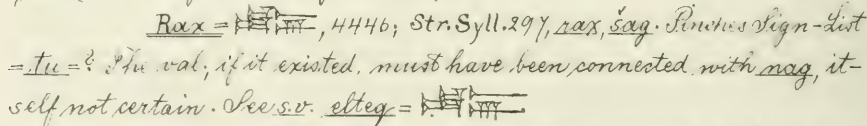 Rax = , 4446; Str. Syll. 297, rax, šag. Pinches Sign-List
= tu = ? The val; if it existed, must have been connected with nag, it-
self not certain. See s.v. elteg =